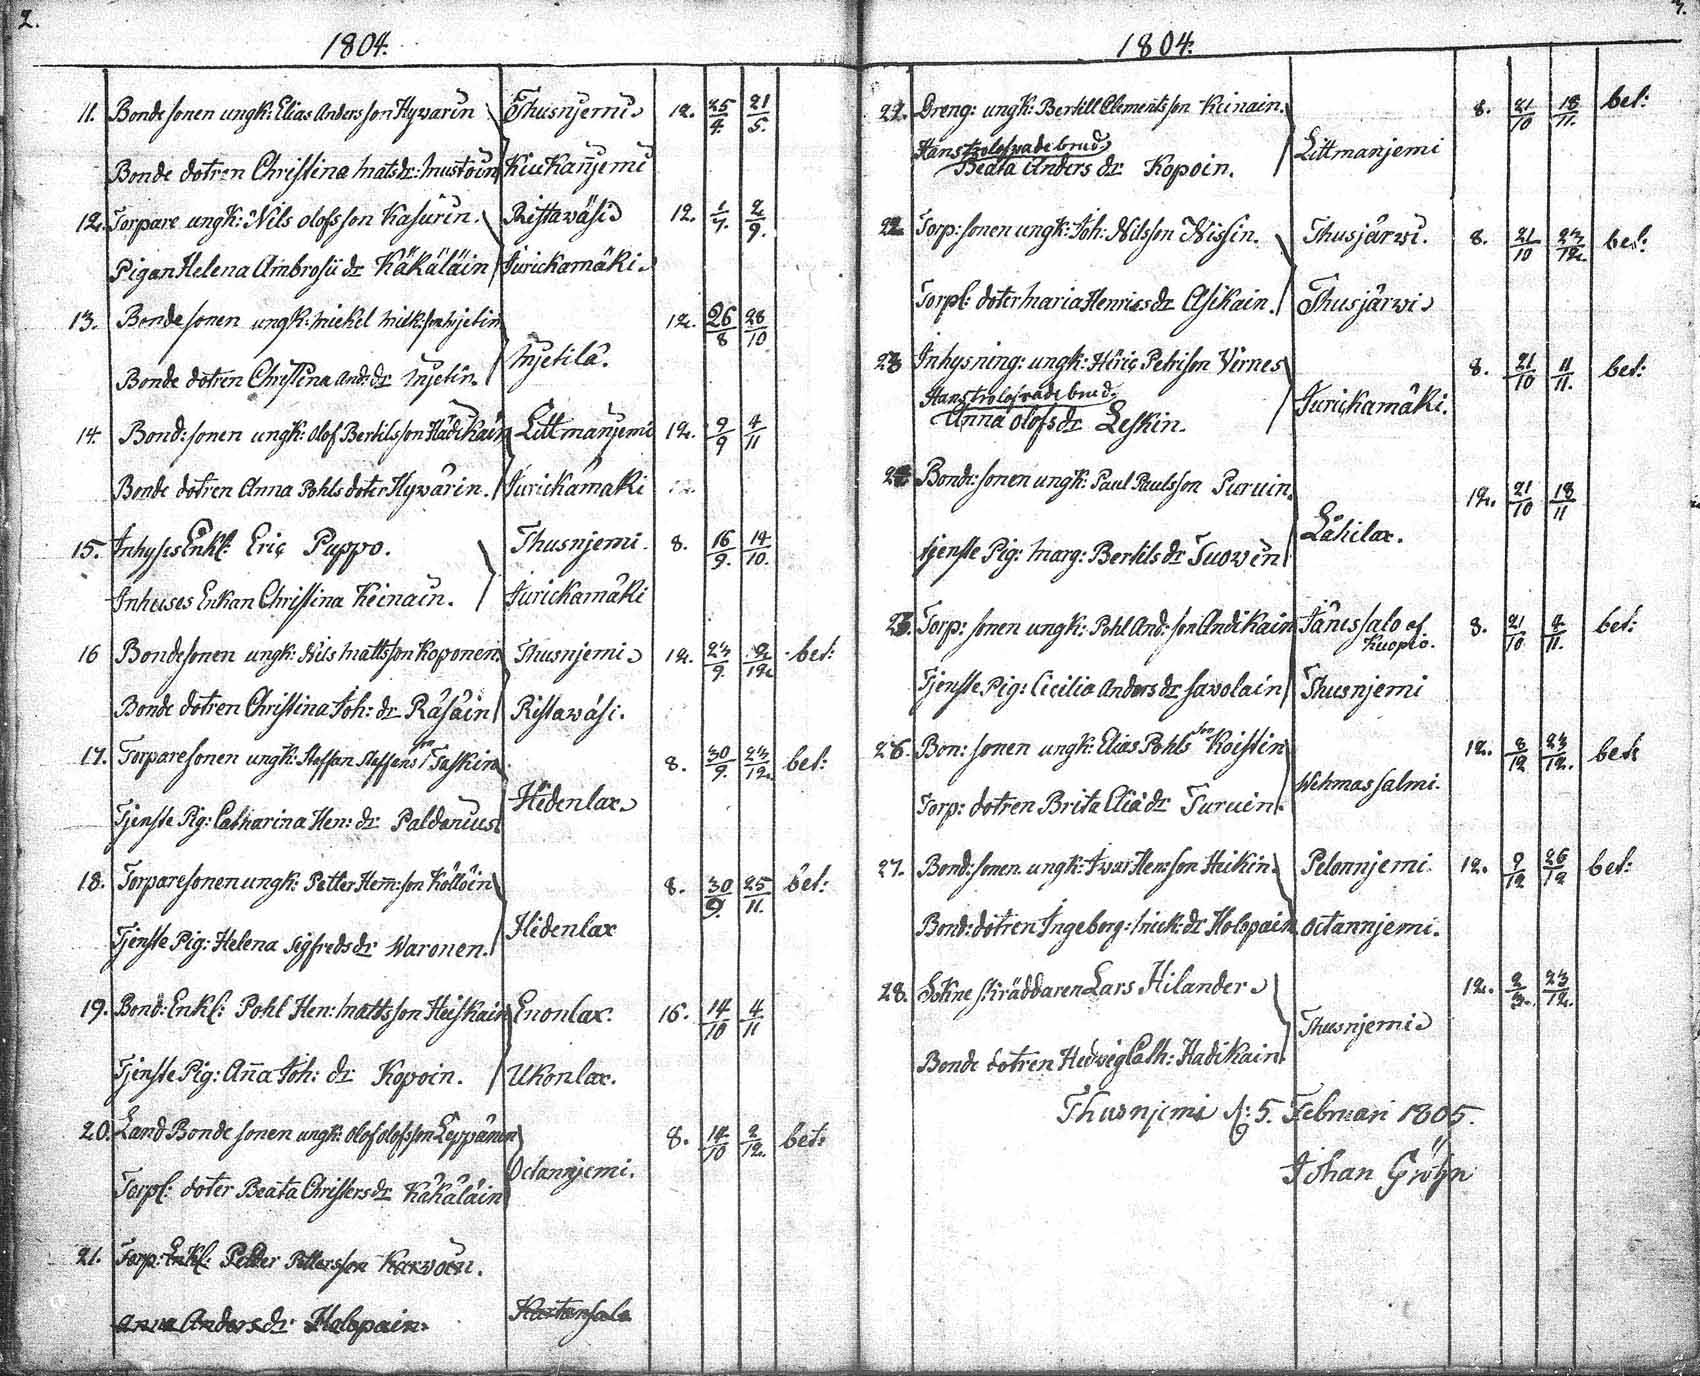 2.
1804.
11. Bondesonen ungk: Elias Andersson Hyvärin Thusnjemi 12. 25/4. 21/5.
Bonde dotren Christina Matsdr: Mustoin Kiukanjemi
12. Torpare ungk: Nils Olofsson Kasurin. Ristawäsi 12. 1/7. 2/9.
Pigan Helena Ambrosii dr Käkäläin Jurickamäki
13. Bondesonen ungk: Mickel Mick:son Mjetin 12. 26/8 28/10
Mjetilä.
Bonde dotren Christina And: dr Mjetin.
14. Bond: sonen ungk: Olof Bertilsson Hadikain Littmanjemi 12. 9/9 4/11
Bonde dotren Anna Pohls doter Hywärin. Jurickamäki
15. Inhyses Enkl: Eriç Puppo. Thusnjemi. 8. 16/9. 14/10.
Inhuses Enkan Christina Keinain. Jurickamäki
16 Bondesonen ungk: Nils Mattsson Koponen Thusnjemi 12. 23/9. 2/12 bet:
Bonde dotren Christina Joh: dr Räsäin Ristawäsi.
17. Torparesonen ungk: Steffan Steffens son Taskin 8. 30/9. 23/12. bet:
Hidenlax
Tjenste Pig: Catharina Hen: dr Paldanius
18. Torparesonen ungk: Petter Hem:son Kölläin 8. 30/9. 25/11. bet:
Hidenlax
Tjenste Pig: Helena Sigfreds dr Waronen.
19. Bond: Enkl: Pohl Hen: Mattsson Heiskain Enonlax. 16. 14/10 4/11
Tjenste Pig: Aña Joh: dr Kopoin. Ukonlax.
20. Land Bonde sonen ungk: Olof Olofsson Leppänen 8. 14/10 2/12. bet:
Octannjemi.
Torpl: doter Beata Christersdr Käkäläin
21. Torp: Enkl: Petter Pettersson Karvoin.
Anna Anders dr Holopain. Kartansalo
3.
1804.
22. Dreng: ungk: Bertill Clementsson Keinain. 8. 21/10 18/11. bet:
Hans trolofwade brud Littmanjemi
Beata Anders dr Kopoin.
22 Torp: sonen ungk: Joh: Nilsson Nissin. Thusjärwi. 8. 21/10 23/12. bet:
Torpl: doter Maria Henrics dr Asikain. Thusjärwi
23 Inhysning: ungk: Heriç Petrison Vïrnes 8. 21/10 11/11. bet:
Hans trolofwade brud. Jurickamäki.
Anna Olofs dr Leskin.
24 Bond: sonen ungk: Paul Paulsson Puruin. 12. 21/10 18/11
Lähilax.
tjenste Pig: Marg: Bertils dr Tuowin
25. Torp: sonen ungk: Pohl And: son Andikain Jänessalo af Kuopio. 8. 21/10 4/11. bet:
Tjenste Pig: Cicilia Anders dr Savolain Thusnjemi
26. Bon: sonen ungk: Elias Pohls son Koistin 12. 8/12 23/12. bet:
Wehmassalmi.
Torp: dotren Brita Eliä dr Turuin.
27. Bond: sonen. ungk: Iwar Hen:son Heikin. Pelonnjemi. 12. 9/12 26/12 bet:
Bond: dotren Ingeborg: Mick: dr Holopain Octannjemi.
28. Sokne skräddaren Lars Hilander 12. 2/3. 23/12.
Thusnjemi
Bonde dotren Hedwig Cath: Hadikain.
Thusnjemi d: 5. Februari 1805.
Johan Gröhn